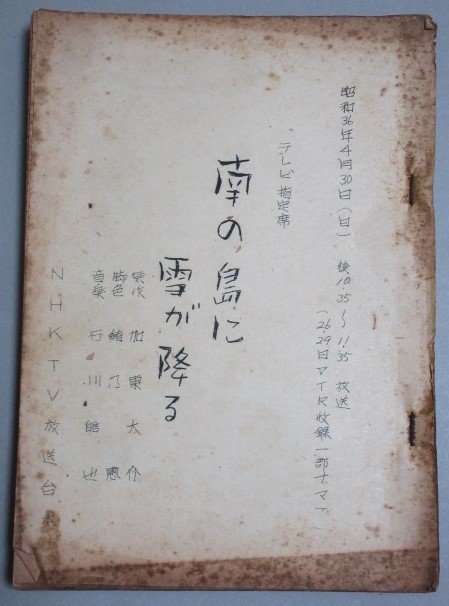 昭和36年4月30日(日) 後10.35～11.35 放送
(26.29日マイド收録一部ナマ)
テレビ指定席
南の島に
雪が降る
原作 加東大介
脚色 緒乃 恵
音楽 石川皓也
NHK TV放送台本